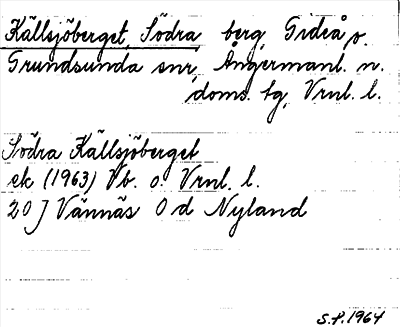 Källsjöberget, Södra, berg, Gideå o.
Grundsunda snr, Ångermanl. n.
doms. tg, Vrnl. l.
Södra Källsjöberget
ek (1963) Vb. o. Vrnl. l.
20 J Vännäs 0 d Nyland
S.P. 1964